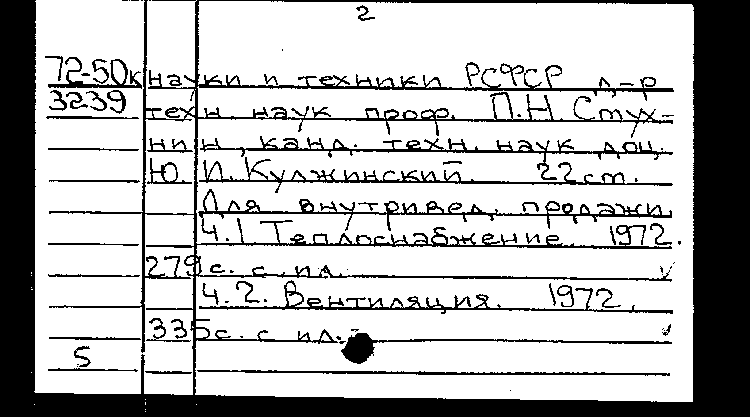 2
72-50к науки и техники РСФСР д-р
3239 техн. наук проф. П.Н. Стух-
нин, канд. техн. наук доц.
Ю. И. Кулжинский. 22 cm.
Для внутривед. продажи.
Ч.1 Теплоснабжение. 1972.
279 с. с ил.
Ч.2. Вентиляция. 1972.
335 с. с ил.-
5